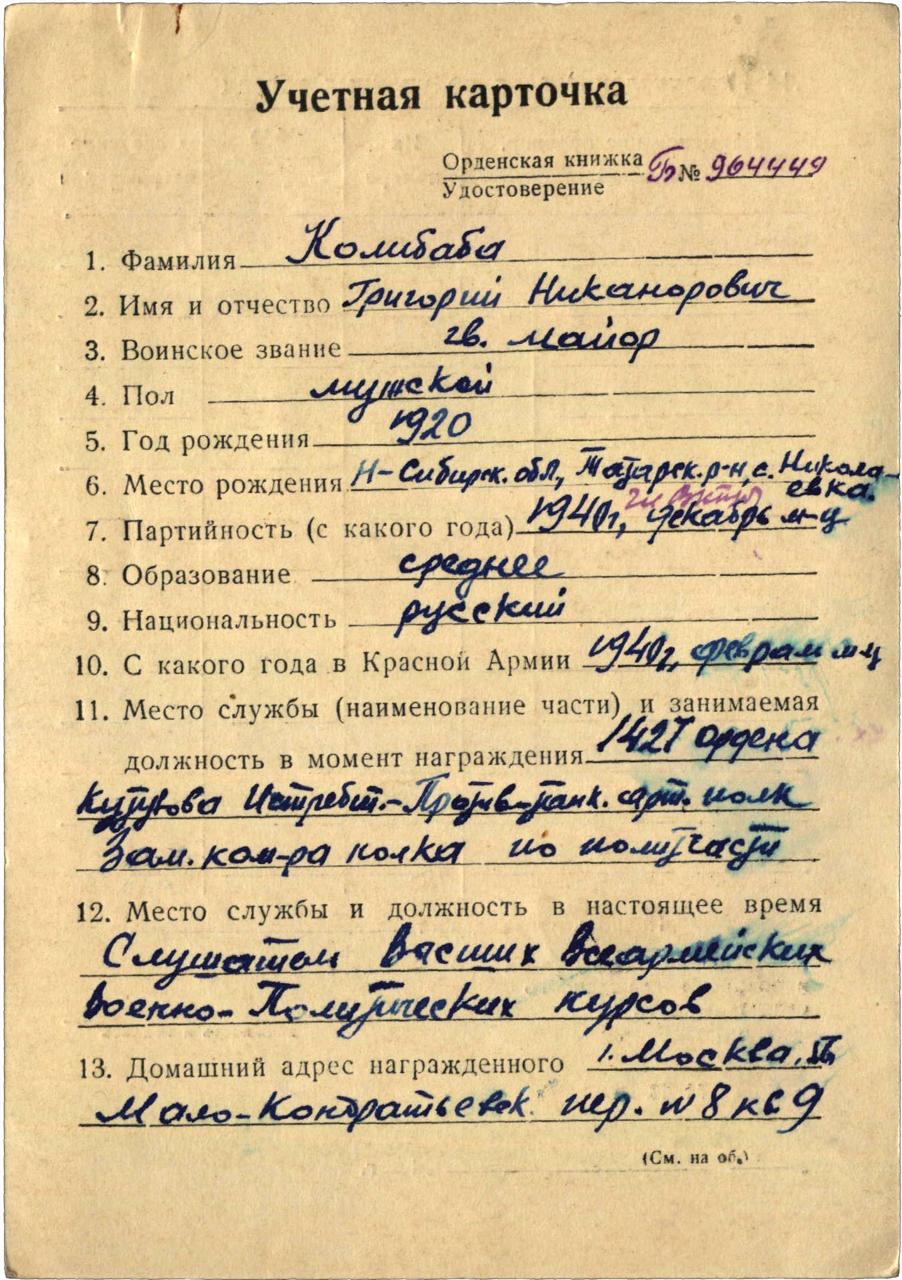 Учетная карточка
Орденская книжка
Удостоверение
Б № 964449
1. Фамилия Колибаба
2. Имя и отчество Григорий Никанорович
3. Воинское звание гв. майор
4. Пол мужской
5. Год рождения 1920
6. Место рождения Н-Сибирск. обл, Татарск. р-н, с. Никола-
евка.
7. Партийность (с какого года) 1940г, декабрь м-ц
8. Образование среднее
9. Национальность русский
10. С какого года в Красной Армии 1940г, февраль м-ц
11. Место службы (наименование части) и занимаемая
должность в момент награждения 1427 ордена
Кутузова Истребит.-Против-танк. арт. полк
Зам. ком-ра полка по политчасти
12. Место службы и должность в настоящее время
Слушатель Высших Всеармейских
Военно-Политических курсов
13. Домашний адрес награжденного г. Москва,
Мало-Кондратьевск. пер. № 8 кв 9
(См. на об.)